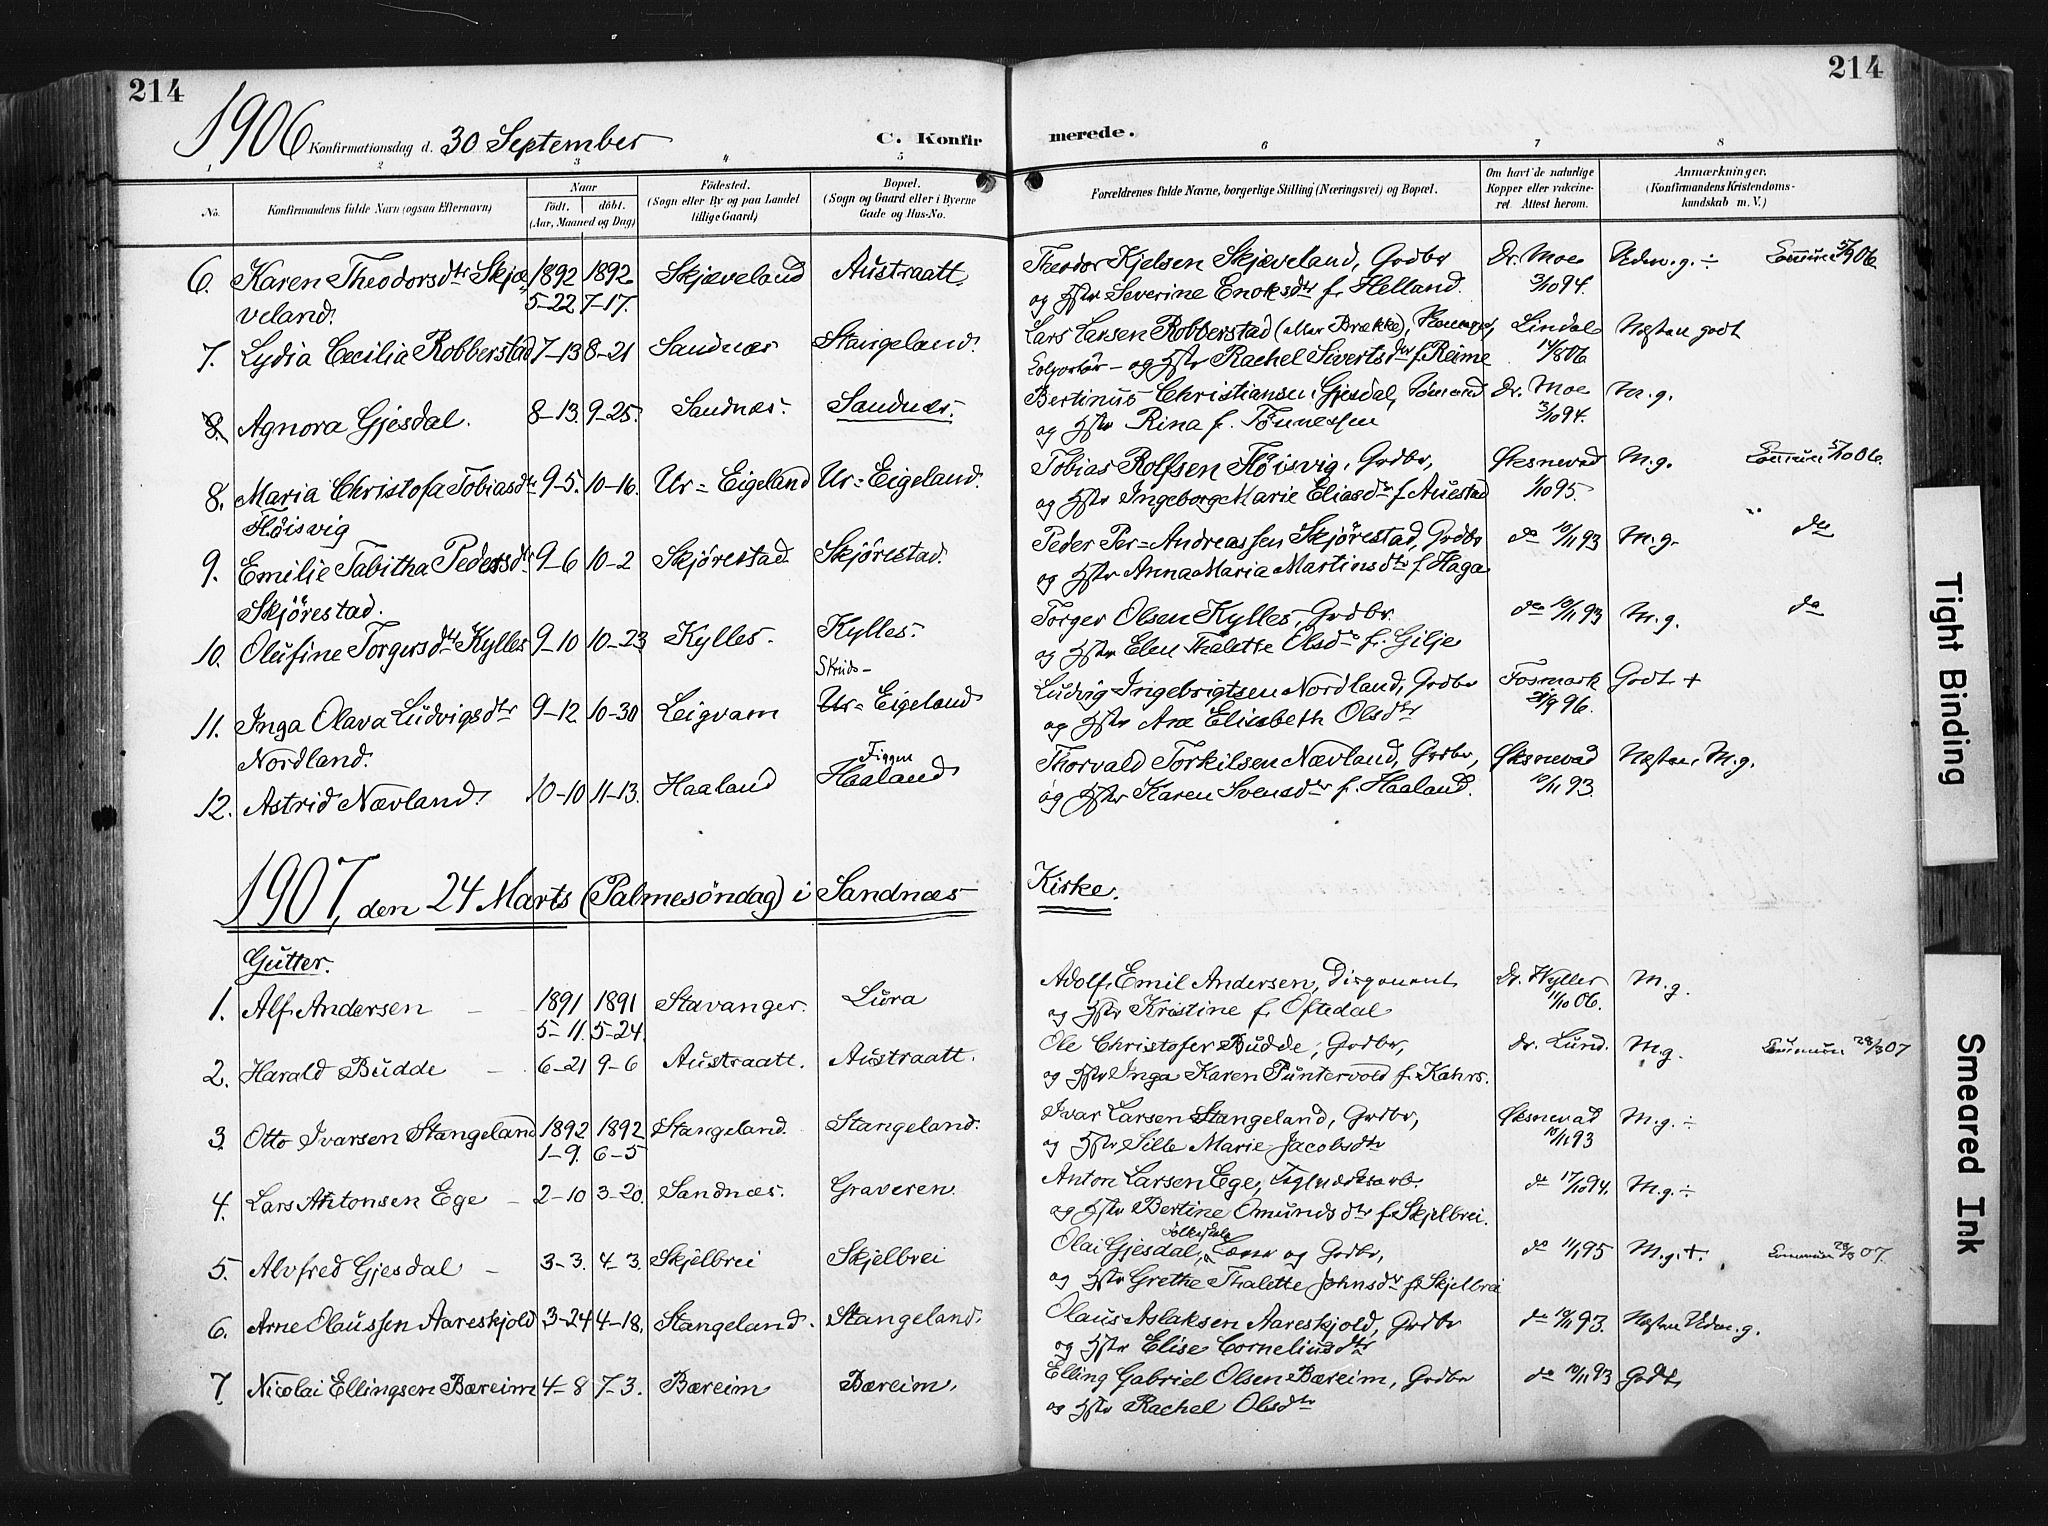 214
214
1906 Konfirmationsdag d. 30 September C. Konfirmerede.
1 2 3 4 5 6 7 8
No. Konfirmandens fulde Navn (ogsaa Efternavn) Naar Födt. döbt. (Aar, Maaned og Dag) Födested. (Sogn eller By og paa Landet tillige Gaard) Bopæl. (Sogn og Gaard eller i Byerne Gade og Hus-No. Forældrenes fulde Navne, borgerlige Stilling (Næringsvei) og Bopæl. Om havt de naturlige Kopper eller vaccineret. Attest herom. Anmærkninger. (Konfirmandens Kristendomskundskab m. V.)
6. Karen Theodorsdtr Skjæ- 1892 1892 Skjæveland Austraatt. Theodor Kjelsen Skjæveland, Grdbr Dr. Moe Udm. g. ÷
veland. 5-22 7-17. og Hstr Severine Enoksdtr f. Helland. 3/10 94.
7. Lydia Cecilia Robberstad 7-13 8-21 Sandnæs Stangeland. Lars Larsen Robberstad (eller Brække), Lindal Næsten godt
Kolportør - og Hstr Rachel Sivertsdtr f. Reime 14/8 06
8. Agnora Gjesdal. 8-13. 9-25. Sandnæs. Sandnæs. Bertinus Christiansen Gjesdal, Dr. Moe M. g.
og Hstr Rina f. Tönnessen 3/10 94.
8. Maria Christofa Tobiasdtr 9-5. 10-16. Ur=Eigeland Ur=Eigeland. Tobias Rolfsen Flöisvig, Grdbr, Öksnevad M. g.
Flöisvig og Hstr Ingeborg Marie Eliasdtr f. Auestad 1/10 95.
9. Emilie Tabitha Pedersdtr 9-6 10-2 Skjörestad Skjörestad. Peder Per=Andreassen Skjörestad, Grdbr do 10/11 93 M. g. do
Skjörestad. og Hstr Anna Maria Martinsdtr f. Haga
10. Olufine Torgersdtr Kylles 9-10 10-23 Kylles. Kylles. Torger Olsen Kylles, Grdbr. do 10/11 93 M. g. do
og Hstr Elen Thalette Olsdtr f. Gilje
Skeids-
11. Inga Olava Ludvigsdtr 9-12 10-30 Leigvam Ur=Eigeland Ludvig Ingebrigtsen Nordland, Grdbr Fosmark Godt +
Nordland. og Hstr Ane Elisabeth Olsdtr 21/9 96.
Figgen
12. Astrid Nævland. 10-10 11-13. Haaland Haaland Thorvald Torkilsen Nævland, Grdbr, Öksnevad Næsten M. g.
og Hstr Karen Svensdtr f. Haaland. 10/11 93.
1907, den 24 Marts (Palmesöndag) i Sandnæs Kirke.
Gutter.
1. Alf Andersen 1891 1891 Stavanger. Lura Adolf Emil Andersen, Disponent Dr. Hyller M. g.
5-11. 5-24. og Hstr Kristine f. Oftedal 11/10 06.
2. Harald Budde 6-21 9-6 Austraatt. Austraatt. Ole Christofer Budde, Grdbr, dr. Lund. M. g.
og Hstr Inga Karen Puntervold f. Kahrs.
3 Otto Ivarsen Stangeland 1892 1892 Stangeland. Stangeland. Ivar Larsen Stangeland, Grdbr, Öksnevad M. g. ÷
1-9. 6-5 og Hstr Sille Marie Jacobsdtr 10/11 93
4. Lars Antonsen Ege 2-10 3-20. Sandnæs. Graveren. Anton Larsen Ege, Teglverksarb. do 17/10 94. M. g. ÷
og Hstr Bertine Omundsdtr f. Skjelbrei.
5. Alvfred Gjesdal 3-3. 4-3. Skjelbrei Skjelbrei Olai Gjesdal, Lærer og Grdbr, do 1/11 95 M. g. +.
og Hstr Grethe Thalette Johnsdtr f. Skjelbrei
6. Arne Olaussen Aareskjold 3-24 4-18. Stangeland. Stangeland. Olaus Aslaksen Aareskjold, Grdbr do 10/11 93. Næsten Udm. g.
og Hstr Elise Corneliusdtr
7 Nicolai Ellingsen Bæreim 4-8 7-3. Bæreim Bæreim. Elling Gabriel Olsen Bæreim, Grdbr do 10/11 93 Godt.
og Hstr Rachel Olsdtr
Tight Binding
Smeared Ink